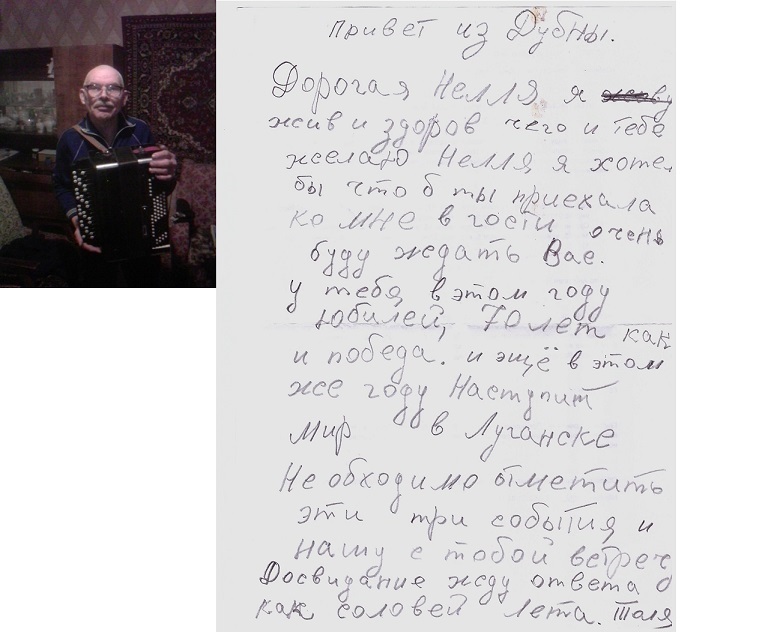 Привет из Дубны.
Дорогая Нелля я
жив и здоров чего и тебе
желаю Нелля я хоте
бы что б ты приехала
ко мне в гости очень
буду ждать Вас.
у тебя в этом году
юбилей, 70 лет как
и победа. и эщё в этом
же году Наступит
мир в Луганске
Не обходимо отметить
эти три события и
нашу с тобой встреч
Досвидание жду ответа
как соловей лета. Толя